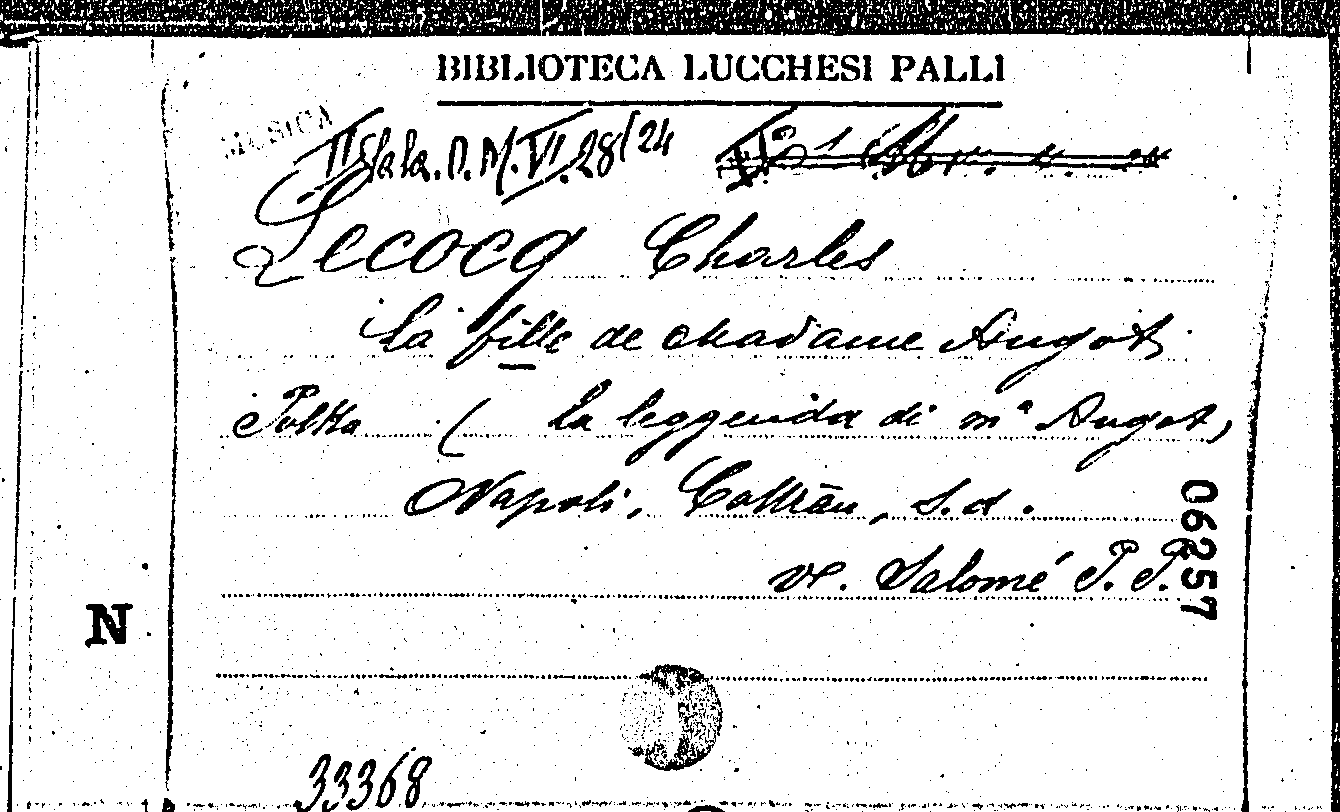 BIBLIOTECA LUCCHESI PALLI
MUSICA
II Sala. D. M. VI. 28/24
Lecocq Charles
La fille de Madame Angot
Polka ( La leggenda di mª Angot,
Napoli, Cottrau, s.d.
ve. Salomé P. P.
06257
N
33368